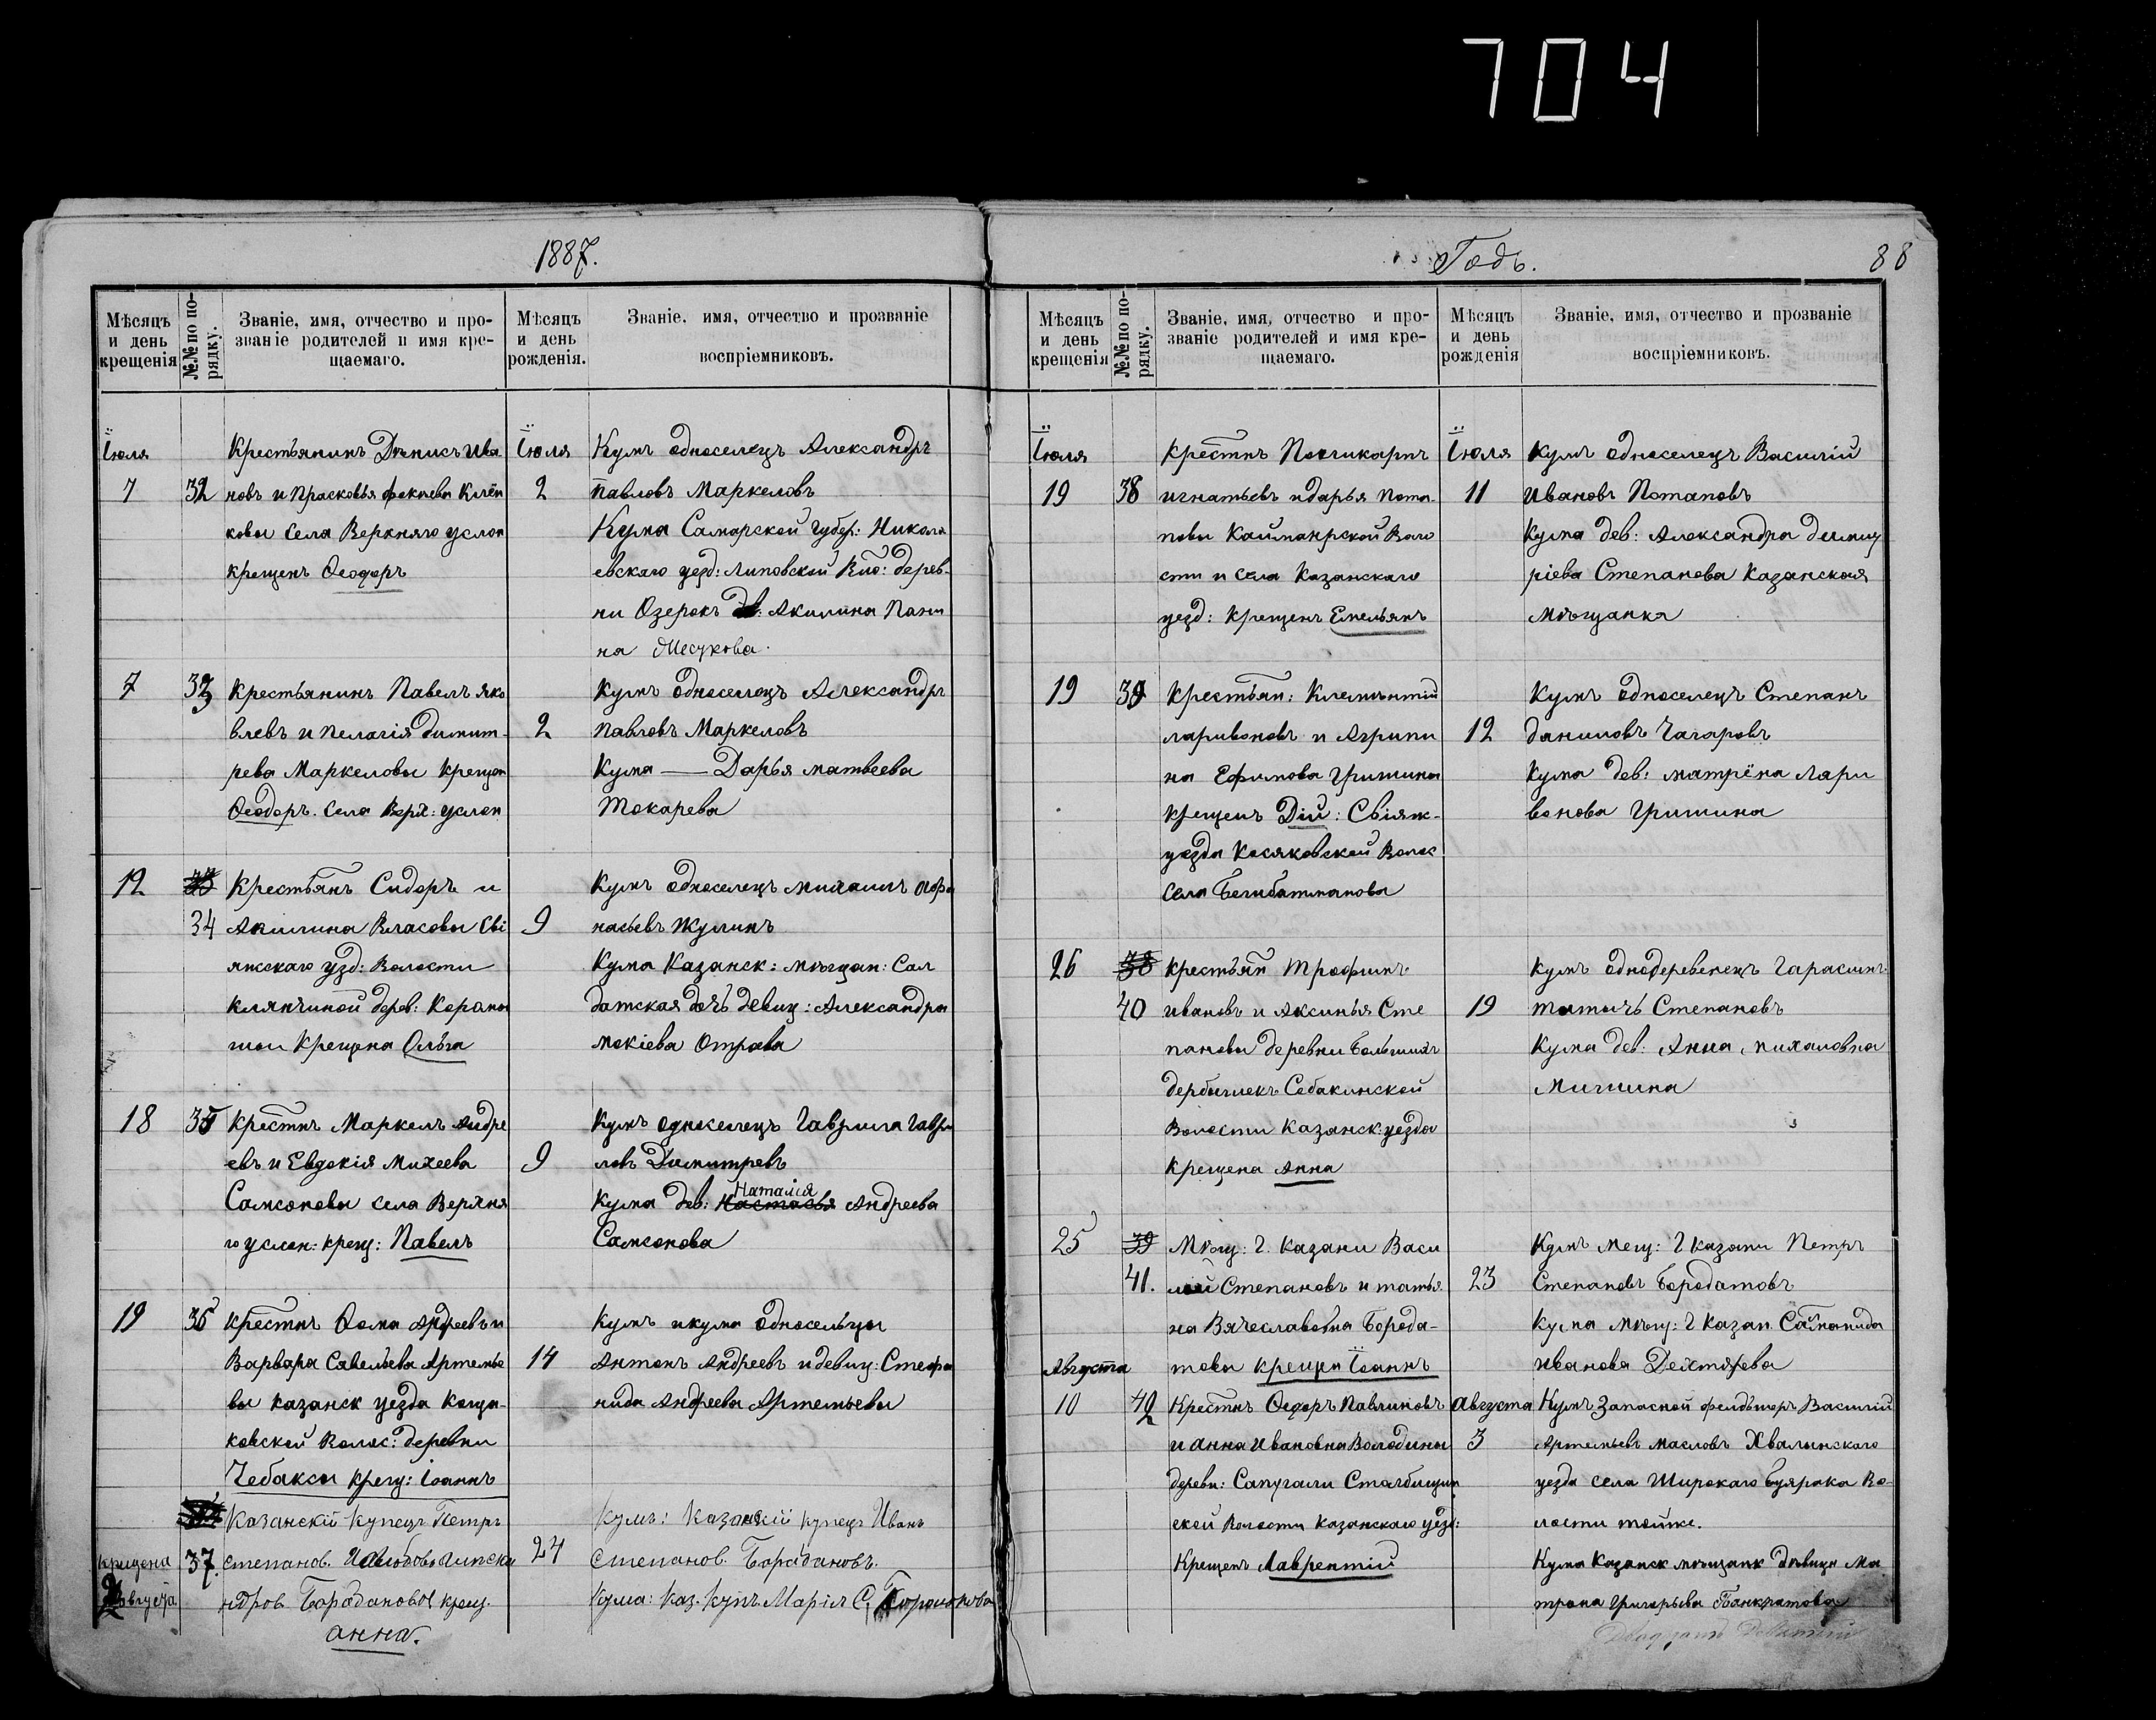 704
1887.
Мѣсяцъ и день крещенія
№№ по порядку.
Званіе, имя, отчество и про-
званіе родителей и имя кре-
щаемаго.
Мѣсяцъ и день рожденія.
Званіе, имя, отчество и прозваніе
воспріемниковъ.
Іюля
7
32
Крестьянинъ Денисъ Ива
новъ и Прасковья
ковы села Верхняго услон
крещенъ Ѳеодоръ
Іюля
2
Кумъ односелецъ Александръ
Павловъ Маркеловъ
Кума Самарской Губер: Никола
евскаго уезд: Липовской дерев-
ни Озерокъ Акилина
на
7
33
Крестьянинъ Павелъ Яко
влевъ и Пелагія Димит-
рева Маркеловы крещен
Ѳеодоръ. Села Верх: услон
2
Кумъ односелецъ Александръ
Павловъ Маркеловъ
Кума — Дарья Матвеева
Токарева
12
34
Крестьянъ Сидоръ и
Акилина Власовы Сві
яжскаго узд: Волости
Клянчиной дерев:
крещена Ольга
9
Кумъ односелецъ Михаилъ Аѳа
насьевъ Жулинъ
Кума Казанск: мѣщан: Сол
датская дочь девиц: Александра
Мокіева
18
35
Крестнъ Маркелъ Андре
евъ и Евдокія Михеева
Самсоновы села Верхня
го услон: крещ: Павелъ
9
Кумъ односелецъ Гаврила Гаври
ловъ Димитревъ
Наталія
Кума дев: Настасья Андреева
Самсонова
19
36
Крестнъ Ѳома Андреевъ и
Варвара Савельева Артемье
вы Казанск уезда Коща-
ковской Волос: деревни
Чебаксы крещ: Іоаннъ
14
Кумъ и кума односельцы
Антонъ Андреевъ и девиц: Стефа
нида Андреева Артемьевы
крещена
2 Августа
37.
Казанскій Купецъ Петръ
степанов. и Любовь
ндров. крещ.
анна.
24
Кумъ: Казанскій купецъ Иванъ
степанов.
Кума: Каз. Куп. Марія С.
Годъ.
88
Мѣсяцъ и день крещенія
№№ по порядку.
Званіе, имя, отчество и про-
званіе родителей и имя кре-
щаемаго.
Мѣсяцъ и день рожденія
Званіе, имя, отчество и прозваніе
воспріемниковъ.
Іюля
19
38
Крестнъ Поликарпъ
Игнатьевъ и Дарья Пота-
повы Каймарской Воло
сти и села Казанскаго
уезд: крещенъ Емельянъ
Іюля
11
Кумъ односелецъ Василій
Ивановъ Потаповъ
Кума дев: Александра Димит
ріева Степанова Казанская
мѣщанка
19
39
Крестьян: Клементій
Ларивоновъ и Агрипи
на Ефимова Гришина
крещенъ Дій: Свіяж-
уезда Косяковской Волос
села Бегибатманова
12
Кумъ односелецъ Степанъ
Даниловъ Чагаровъ
Кума дев: Матрёна Лари
вонова Гришина
26
38
40
Крестьян Трофимъ
Ивановъ и Аксинья Сте
пановы деревни Большихъ
дербышекъ Собакинской
Волости Казанск: уезда
крещена Анна
19
Кумъ однодеревенецъ Гарасимъ
Степановъ
Кума дев: Анна Михаловна
Мишина
25
39
41.
Мѣщ: г. Казани Васи
лій Степановъ и татья
на Вячеславовна Борода-
товы крещен Іоаннъ
23
Кумъ мещ: г Казани Петръ
Степановъ Бородатовъ
Кума мѣщ: г Казан. Степанида
Иванова Дехтярева
Августа
10
42
Крестнъ Ѳедоръ Павлиновъ
и Анна Ивановна Володины
деревн: Сапугали Столбищин
ской Волости Казанскаго уезд:
Крещенъ Лаврентій
Августа
3
Кумъ Запасной фельдшеръ Василій
Артемьевъ Масловъ Хвалынскаго
уезда села Широкаго Буярака Во-
лости тойже.
Кума Казанск мѣщанк дѣвица Ма
трона Григорьева Панкратова